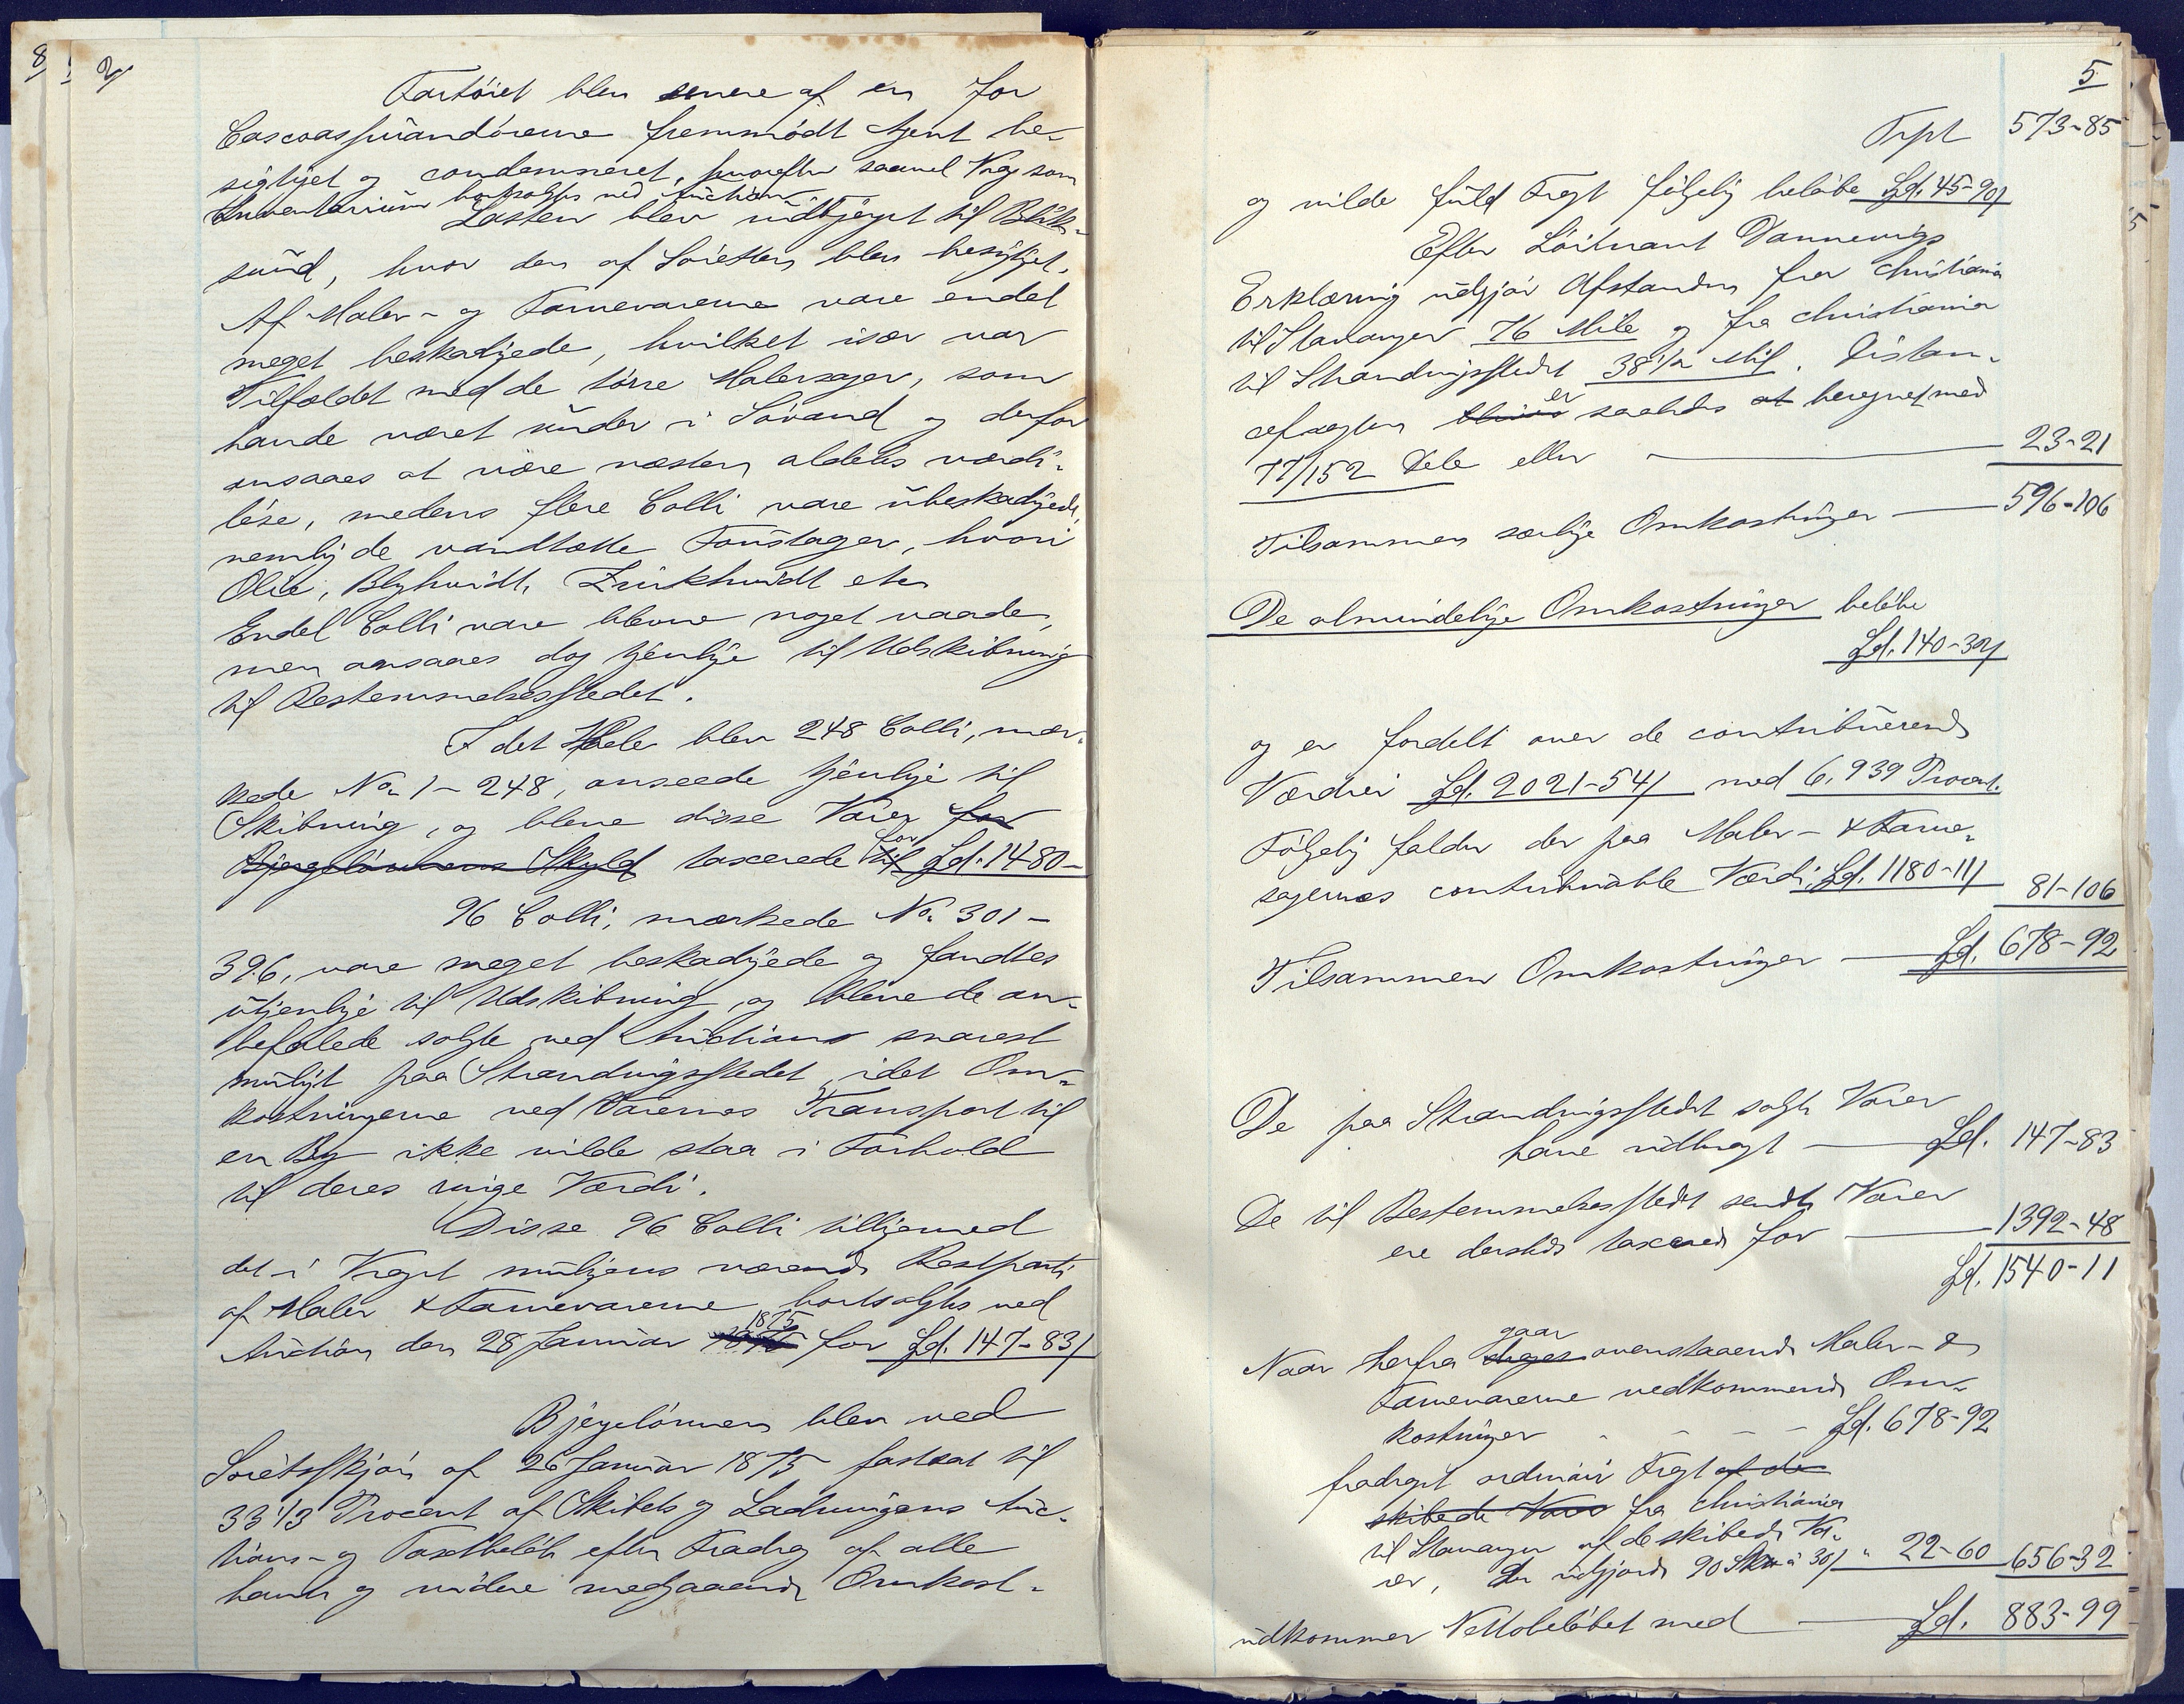 8/
2/
Fartöiet blev senere af en for
Cascoassurandörerne fremmödt Agent be-
sigtiget og condemneret, hvorefter saavel Vrag som
Inventarium bortsolgtes ved Auction
Lasten blev udbjerget til Blik-
sund, hvor den af Söretten blev besigtiget.
Af Maler- og Farvevarerne vare endel
meget beskadigede, hvilket især var
Tilfældet med de törre Malersager, som
havde været under i Sövand og derfor
ansaaes at være næsten aldeles værdi-
löse, medens flere Colli vare ubeskadigede,
nemlig de vandtætte Foustager, hvori
Olie, Blyhvidt, Zinkhvidt etc
Endel Colli vare blevne noget vaade,
men ansaaes dog tjenlige til Udskibning
til Bestemmelsesstedet.
I det Hele blev 248 Colli, mær-
kede No. 1-248, anseede tjenlige til
Skibning, og bleve disse Varer for
Bjergelönnens Skyld taxerede til for Spd. 1480-
96 Colli, mærkede No. 301-
396, vare meget beskadigede og fandtes
utjenlige til Udskibning, og bleve de an-
befalede solgte ved Auction snarest
muligt paa Strandingsstedet, idet Om-
kostningerne ved Varernes Transport til
en By ikke vilde staa i Forhold
til deres ringe Værdi.
Disse 96 Colli tilligemed
det i Vraget muligens værende Restparti
af Maler & Farvevarerne bortsolgtes ved
Auction den 28 Januar 1875 for Spd. 147-83/
Bjergelönnen blev ved
Söretsskjön af 26 Januar 1875 fastsat til
33 1/3 Procent af Skibets og Ladningens Auc-
tions- og Taxtbelöb efter Fradrag af alle
havte og videre medgaaende Omkost-
5
Trpt 573-85
og vilde fuld Fragt fölgelig belöbe Spd. 45-90/
Efter Löitnant Dannevigs
Erklæring udgjör Afstanden fra Christiania
til Stavanger 76 Mile og fra Christiania
til Strandingsstedet 38 1/2 Mil. Distan-
cefragten er saaledes at beregnet med
77/152 Dele eller 23-21
Tilsammen særlige Omkostninger 596-106
De almindelige Omkostninger belöbe
Spd. 140-32/
og er fordelt over de contribuerende
Værdier Spd. 2021-54/ med 6,939 Procent.
Fölgelig falder der paa Maler- & Farve-
sagernes contribuable Værdi Spd. 1180-11/ 81-106
Tilsammen Omkostninger Spd. 678-92
De paa Strandingsstedet solgte Varer
have udbragt Spd. 147-83
De til Bestemmelsesstedet sendte Varer
ere dersteds taxerede for 1392-48
Spd. 1540-11
Naar herfra drages gaar ovenstaaende Maler- &
Farvevarerne vedkommende Om-
kostninger - - - - Spd. 678-92
fradraget ordinair Fragt af de
skibede Varer fra Christiania
til Stavanger af de skibede Va-
rer, der udgjorde 90 Skr à 30/ " 22-60 656-32
udkommer Nettobelöbet med Spd. 883-99